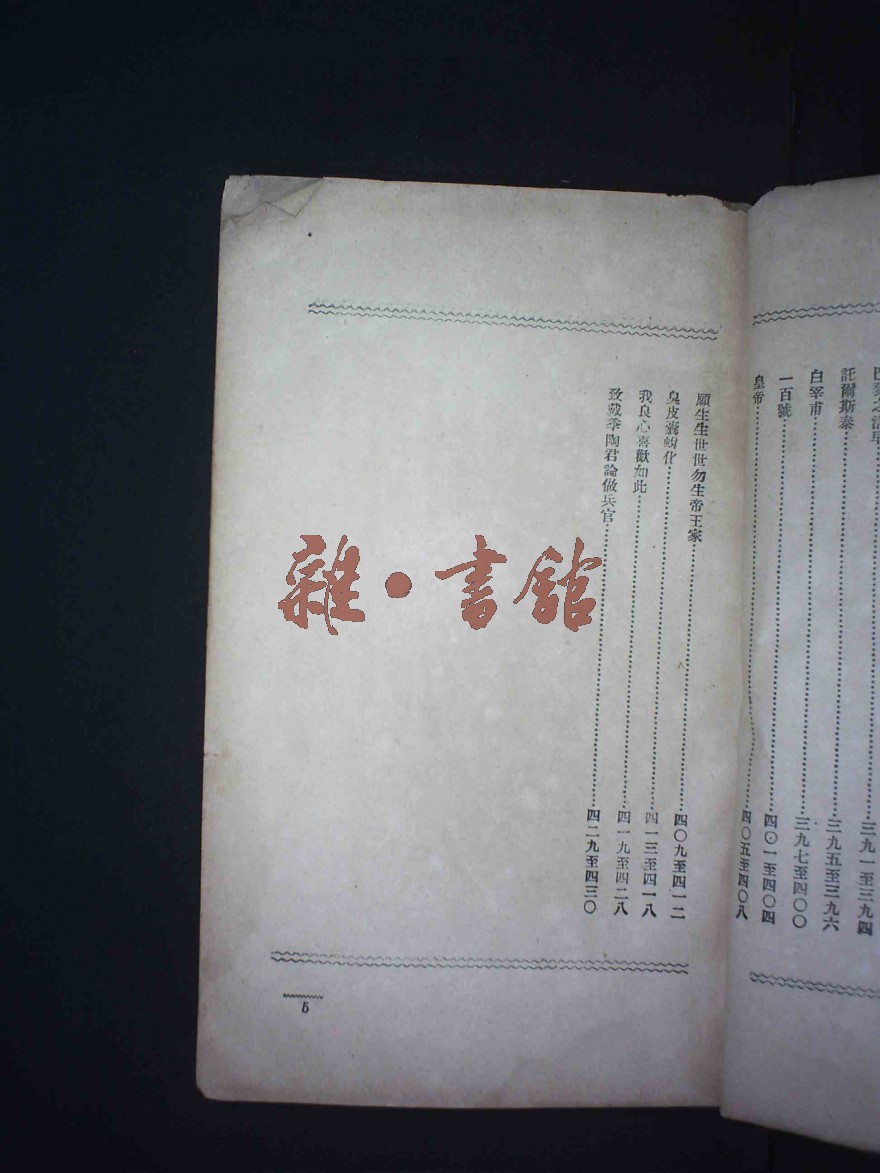 託爾斯泰……三九五至三九六
白宰甫……三九七至四〇〇
一百號……四〇一至四〇四
皇帝……四〇五至四〇八
願生生世世勿生帝王家……四〇九至四一二
臭皮囊蛻化……四一三至四一八
我良心喜歡如此……四一九至四二八
致戴季陶君論做兵官……四二九至四三〇
5
雜·書館